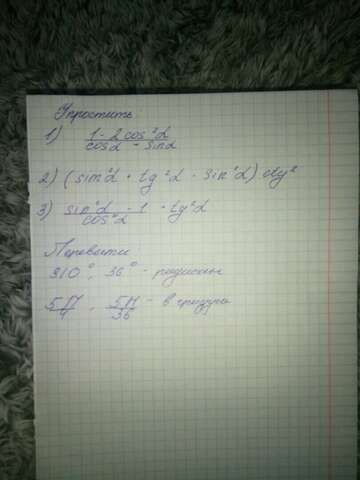 Упростить:
1) 1 - 2 cos²α / cosα - sinα
2) (sin²α + tg²α · sin²α) ctg²
3) sin²α - 1 / cos²α + tg²α
Перевести
310°, 36° - радианы
5П/4, 5П/36 - в градусы